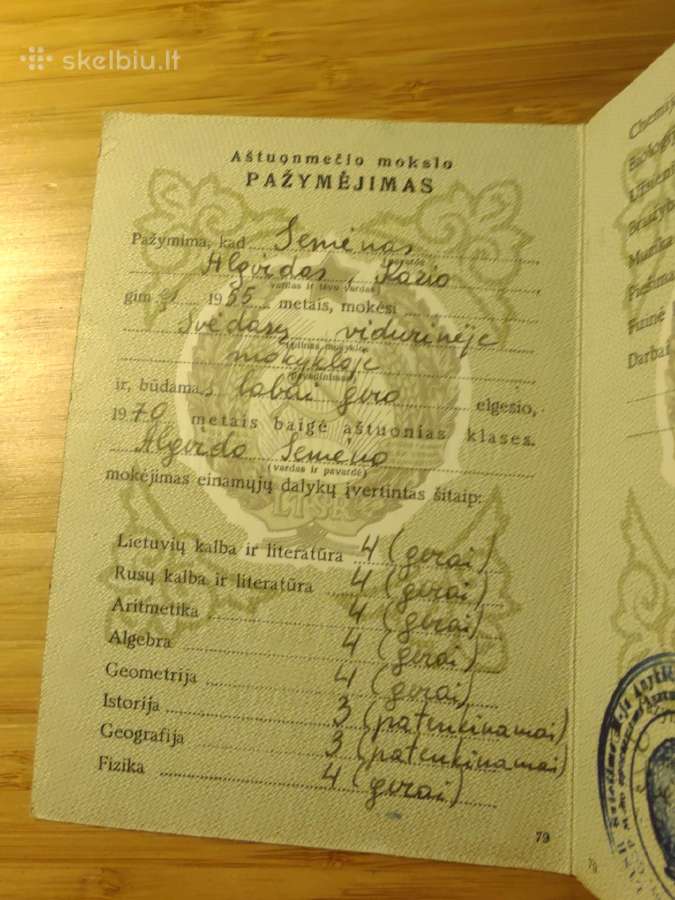 skelbiu.lt
Aštuonmečio mokslo
PAŽYMĖJIMAS
Pažymima, kad Semėnas
pavardė
Algirdas, Kazio
vardas ir tėvo vardas
gim. 1955 metais, mokėsi
Svėdasų vidurinėje
mokykloje
ir, būdamas labai gero elgesio,
1970 metais baigė aštuonias klases.
Algirdo Semėno
(vardas ir pavardė)
mokėjimas einamųjų dalykų įvertintas šitaip:
LTSR
Lietuvių kalba ir literatūra 4 (gerai)
Rusų kalba ir literatūra 4 (gerai)
Aritmetika 4 (gerai)
Algebra 4 (gerai)
Geometrija 4 (gerai)
Istorija 3 (patenkinamai)
Geografija 3 (patenkinamai)
Fizika 4 (gerai)
79
Chemija
Biologij
Užsieni
Braižyb
Muzika
Piešima
Fizinė
Darbai
79